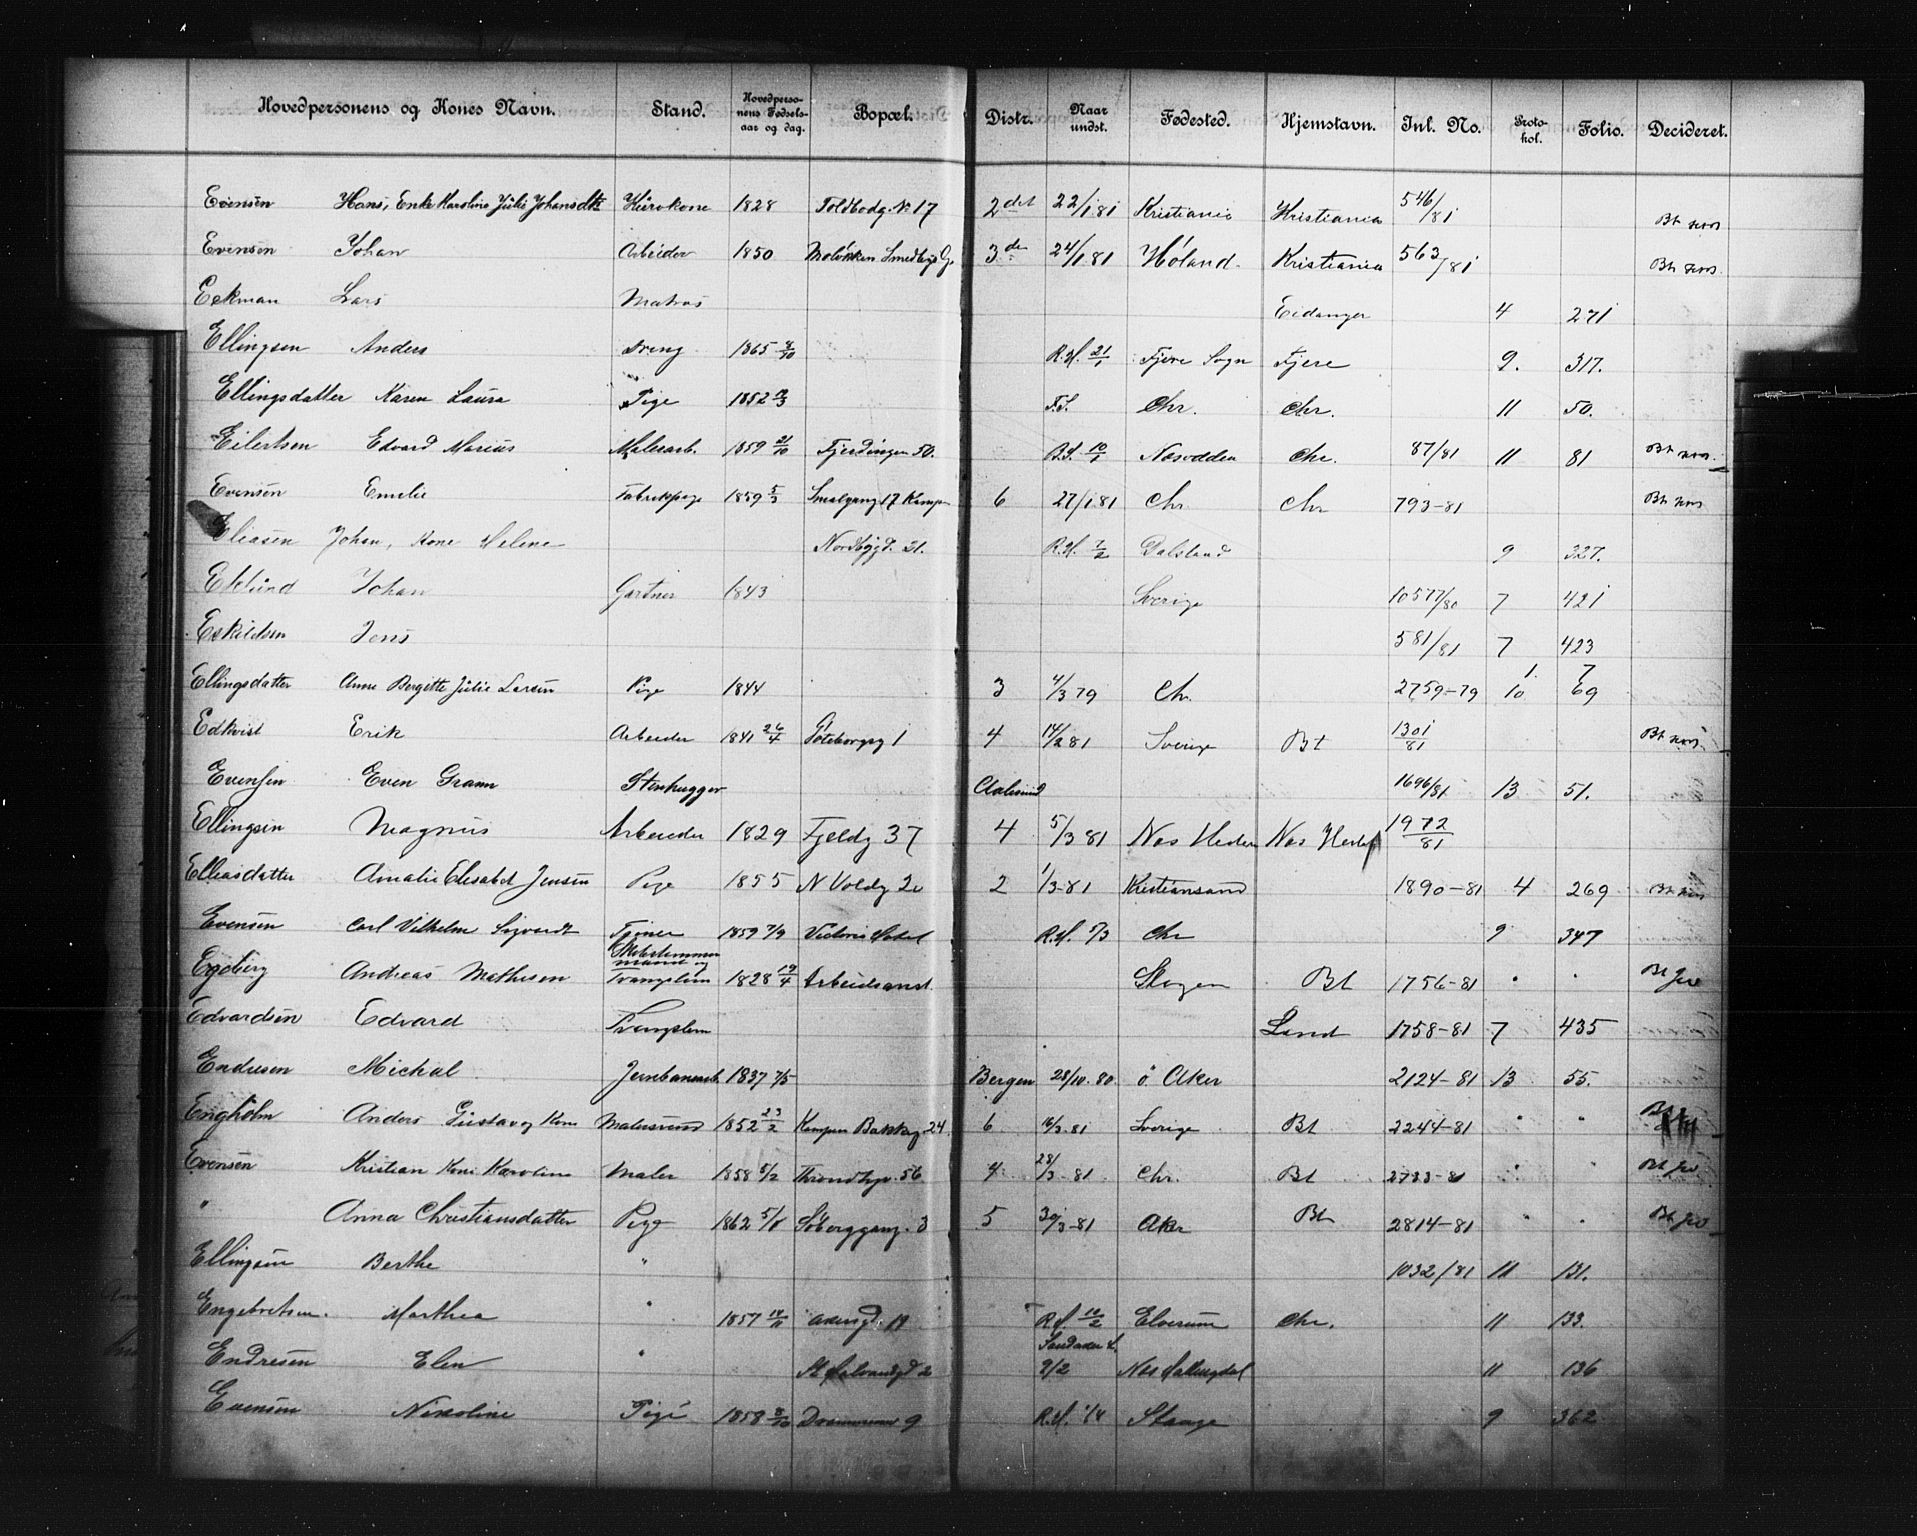 Hovedpersonens og Kones Navn. Stand. Hovedperso-nens Fødsels-aar og dag. Bopæl. Distr. Naar undst. Fødested. Hjemstavn. Inl. No. Proto-kol. Folio. Decideret.
Evensen Hans, Enke Karoline Julie Johansdtr 1828 Toldbodg. No 17 2det 22/1 81 Kristiania Kristiania 546/81
Evensen Johan Arbeider 1850 3de 24/1 81 Høland Kristiania 563/81
Eekman Lars Matros Eidanger 4 271
Ellingsen Anders Dreng 1865 R.H. 21/1 Fjere Sogn Fjere 9. 317.
Ellingsdatter Karen Laura Pige 1852 F.S. Chr. Chr. 11 50.
Eilertsen Edvard Marius Malerarb. 1859 21/10 Fjerdingen 50. 10/1 Nesodden Chr. 87/81 11 81
Evensen Emilie Fabrikpige 1859 5/3 Smalgang 17 Kampen 6 27/1 81 Chr. Chr 793-81
Eliasen Johan, Kone Helene Nordbygd. 21. R.H. 7/2 Dalsland 9 327.
Eklund Johan Gartner 1843 Sverige 1057/80 7 421
Eskildsen Jens 581/81 7 423
Ellingsdatter Anne Bergitte Julie Larsen Pige 1844 3 4/3 79 Ch. 2759-79 1. 10 7 69
Edkvist Erik Arbeider 1841 26/4 Gøteborgsg 1 4 14/2 81 Sverige Bt 1301/81
Evensen Even Gramn Stenhugger Aalesund 1696/81 13 51.
Ellingsen Magnus Arbeider 1829 Fjeldg 37 4 5/3 81 Nes Heden Nes Heden 1972/81
Elleasdatter Amalie Elisabet Jensen Pige 1855 N Voldg 20 2 1/3-81 Kristiansand 1890-81 4 269
Evensen Carl Vilhelm Sigvardt Tjener 1859 7/9 Victoria Hotel R.H. 7/3 Chr 9 347
Egeberg Andreas Mathisen Tvangslem 1828 19/4 Arbeidsanst. Skogen Bt 1756-81 " "
Edvardsen Edvard Tvangslem Land 1758-81 7 435
Endresen Michal Jernbanearb. 1837 7/5 Bergen 28/10. 80 ø. Aker 2124-81 13 55.
Engholm Anders Gustav og Kone Malersvend 1852 23/2 Kampen Bakkeg 24 6 16/3 81 Sverige Bt 2244-81 " "
Evensen Kristian Kone Karoline Maler 1858 5/2 Throndhjv. 56 4 28/3-81 Chr. Bt 2733-81 " "
" Anna Christiansdatter Pige 1862 5/8 Søberggang. 3 5 30/3-81 Aker Bt 2814-81 " "
Ellingsen Berthe " 1032/81 11 131.
Engebretsen Marthea " 1857 Akersgd. 19 R.H. 10/2 Elverum Chr. 11 133.
Endresen Elen " 2 9/2 Nes Hallingdal 11 136
Evensen Nikoline Pige 1858 8/10 Drammensv 9 R.H. 1/4 Stange 9 362